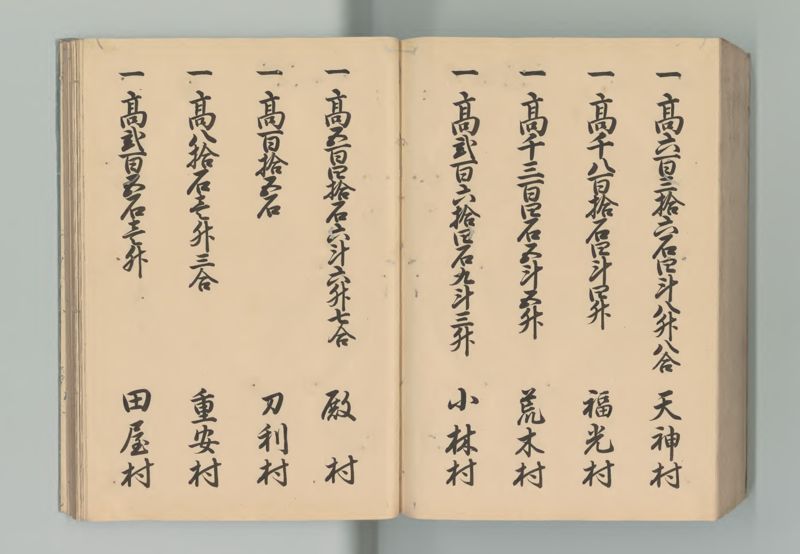 一 高六百三拾六石四斗八升八合 天神村
一 高千八百拾石四斗四升 福光村
一 高千三百四石五斗五升 荒木村
一 高弐百六拾四石九斗三升 小林村
一 高五百四拾石六斗六升七合 殿村
一 高百拾五石 刀利村
一 高八拾石壱升三合 重安村
一 高弐百五石壱升 田屋村